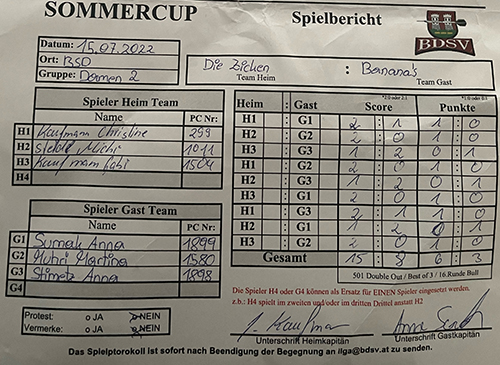 SOMMERCUP
Spielbericht
BDSV
Datum: 15.07.2022
Ort: BSO
Gruppe: Damen 2
Die Zicken : Banana's
Team Heim Team Gast
Spieler Heim Team
Name PC Nr:
H1 Kaufmann Christine 299
H2 Michi 1011
H3 Kaufmann Gabi 1504
H4
Spieler Gast Team
Name PC Nr:
G1 Anna 1899
G2 Muhri Martina 1580
G3 Anna 1898
G4
Heim : Gast Score Punkte
H1 : G1 2 : 1 1 : 0
H2 : G2 2 : 0 1 : 0
H3 : G3 1 : 2 0 : 1
H1 : G2 2 : 0 1 : 0
H2 : G3 1 : 2 0 : 1
H3 : G1 2 : 0 1 : 0
H1 : G3 2 : 1 1 : 0
H2 : G1 1 : 2 0 : 1
H3 : G2 2 : 0 1 : 0
Gesamt 15 : 8 6 : 3
501 Double Out / Best of 3 / 16.Runde Bull
Die Spieler H4 oder G4 können als Ersatz für EINEN Spieler eingesetzt werden.
z.b.: H4 spielt im zweiten und/oder im dritten Drittel anstatt H2
Protest: o JA o NEIN
Vermerke: o JA o NEIN
Unterschrift Heimkapitän Unterschrift Gastkapitän
Das Spielprotokoll ist sofort nach Beendigung der Begegnung an liga@bdsv.at zu senden.